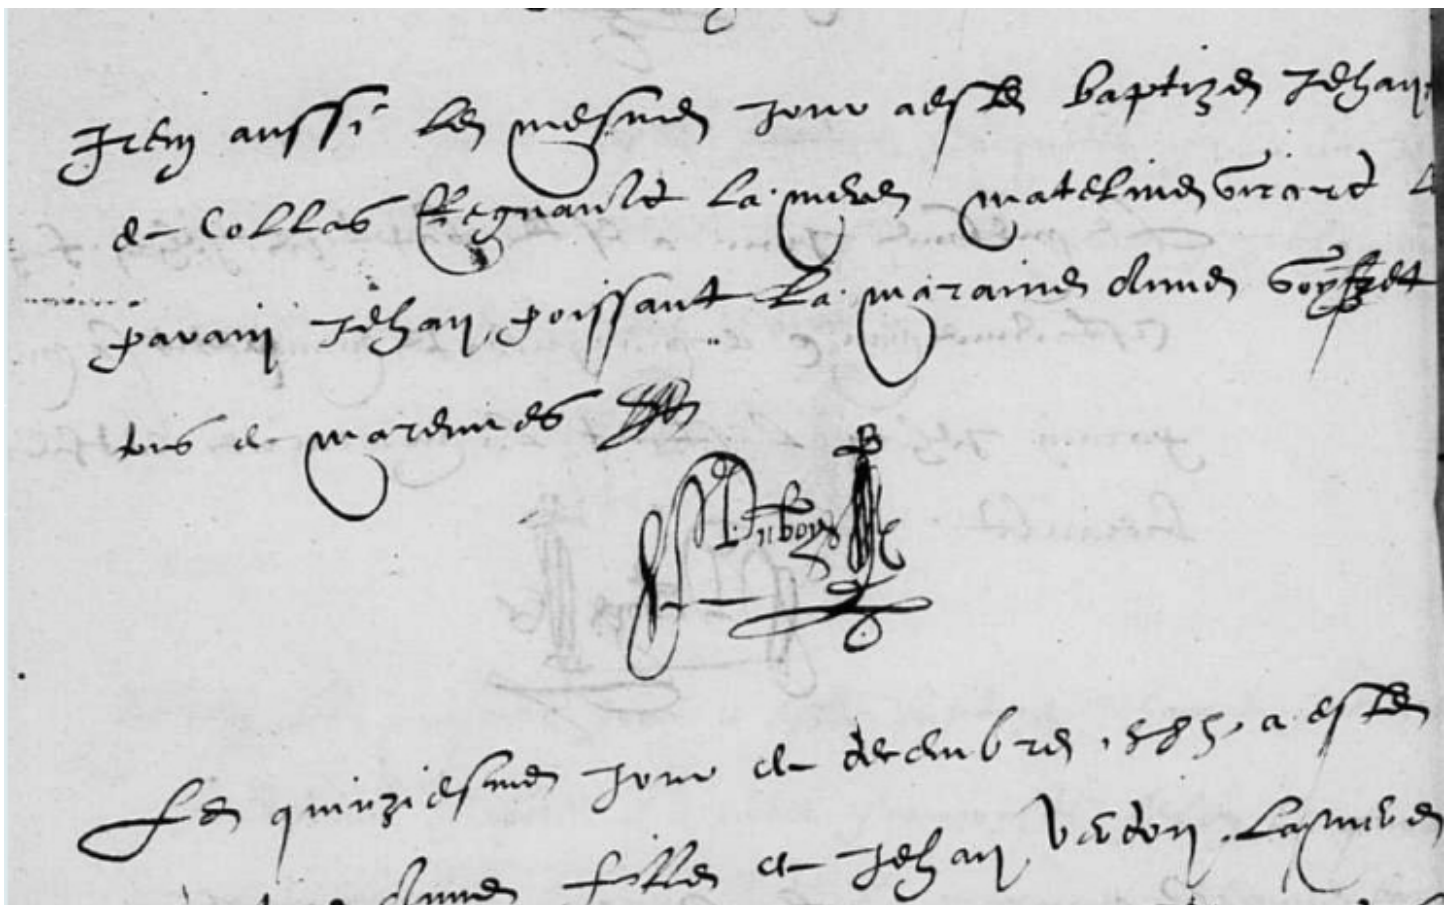 Item aussi le mesme jour a este baptize Jehan
de Collas Regnault la mere mateline Girard
parain Jehan poissant la maraine Anne
tous de marennes
Duboys
Le quinziesme jour de decembre 1585 a este
fille de Jehan Verdon la mere